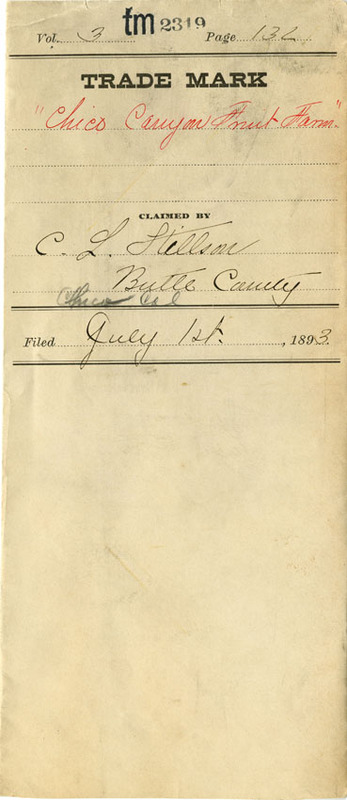 tm 2319
Vol. 3 Page 132
TRADE MARK
"Chico Canyon Fruit Farm".
CLAIMED BY
C. L. Stillson
Butte County
Chico Cal
Filed July 1st. , 1893.